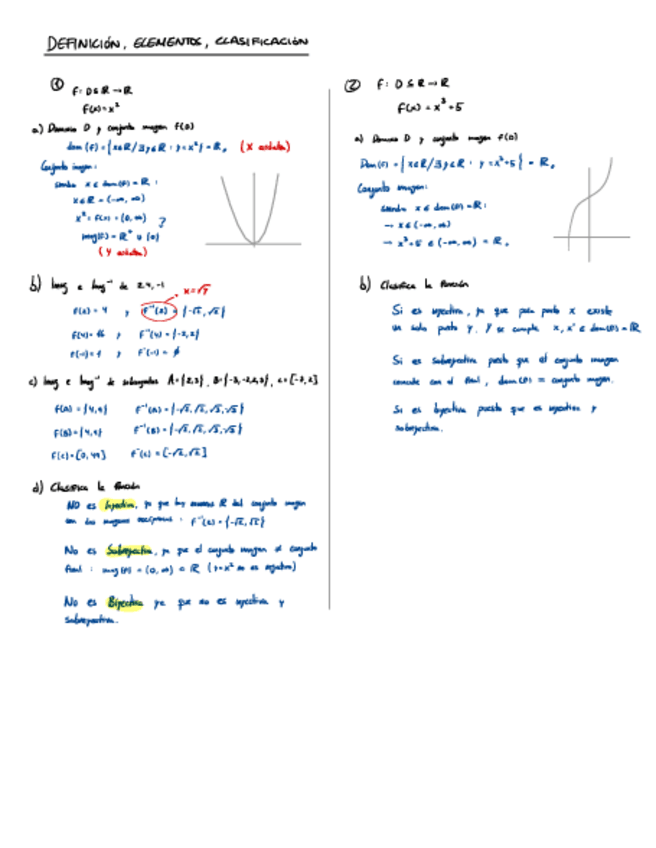 DEFINICIÓN, ELEMENTOS, CLASIFICACIÓN
① F: D ⊆ R → R
F(x) = x²
a) Dominio D y conjunto imagen F(D)
dom (F) = {x∈R / ∃y∈R : y = x²} = R, (X entradas)
Conjunto imagen:
x ∈ dom(F) = R :
x ∈ R = (-∞, ∞)
x² = F(x) = (0, ∞)
img(F) = R⁺ ∪ {0}
(Y salidas)
b) Imag e Imag⁻¹ de 2, 4, -1
x = √y
F(2) = 4 , F⁻¹(2) = {-√2, √2}
F(4) = 16 , F⁻¹(4) = {-2, 2}
F(-1) = 1 , F⁻¹(-1) = ∅
c) Imag e Imag⁻¹ de subconjuntos A = {2, 3}
F(A) = {4, 9} F⁻¹(A) = {-√2, √2, √3, -√3}
F(B) = {4, 9} F⁻¹(B) = {-√2, √2, √3, -√3}
F(C) = [0, 49] F⁻¹(C) = [-√2, √2]
d) Clasifica la función
NO es Inyectiva, ya que hay números R del conjunto imagen
con dos imágenes recíprocas : F⁻¹(2) = {-√2, √2}
No es Subreyectiva, ya que el conjunto imagen ≠ conjunto
final : img(F) = (0, ∞) R (y = x² no es negativo)
No es Biyectiva ya que no es inyectiva y
subreyectiva.
② F: D ⊆ R → R
F(x) = x³ + 5
a) Dominio D y conjunto imagen F(D)
Dom(F) = {x∈R / ∃y∈R : y = x³+5} = R,
Conjunto imagen:
x ∈ dom(F) = R :
→ x ∈ (-∞, ∞)
→ x³+5 ∈ (-∞, ∞) = R,
b) Clasifica la función
Si es inyectiva, ya que para punto x existe
un solo punto y. Y se cumple x, x' ∈ dom(F) = R
Si es subreyectiva puesto que el conjunto imagen
coincide con el final, dom(F) = conjunto imagen.
Si es biyectiva puesto que es inyectiva y
subreyectiva.